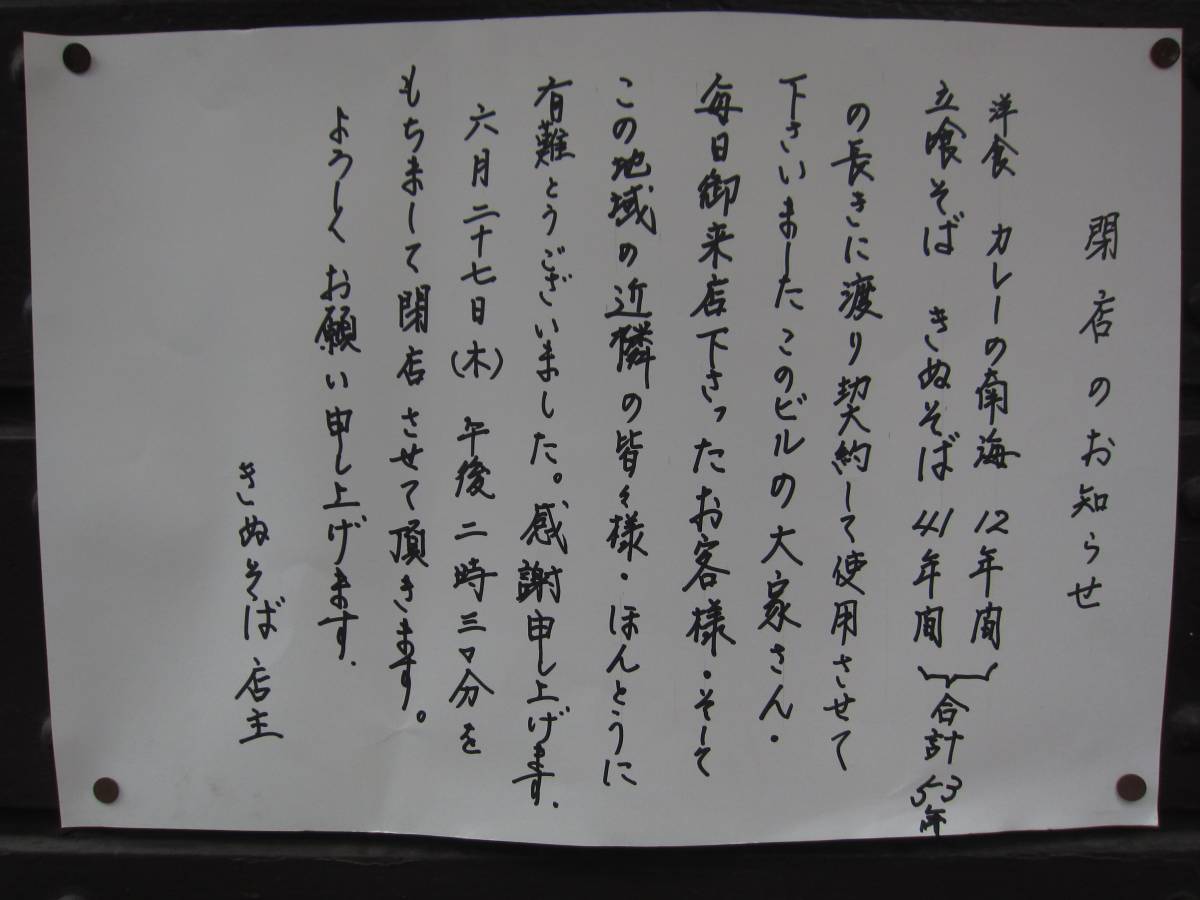 閉店のお知らせ
洋食 カレーの南海 12年間
立喰そば きぬそば 41年間
合計53年
の長きに渡り契約して使用させて
下さいましたこのビルの大家さん・
毎日御来店下さったお客様・そして
この地域の近隣の皆々様・ほんとうに
有難とうございました。感謝申し上げます.
六月二十七日(木) 午後二時三〇分を
もちまして閉店させて頂きます。
よろしくお願い申し上げます.
きぬそば 店主